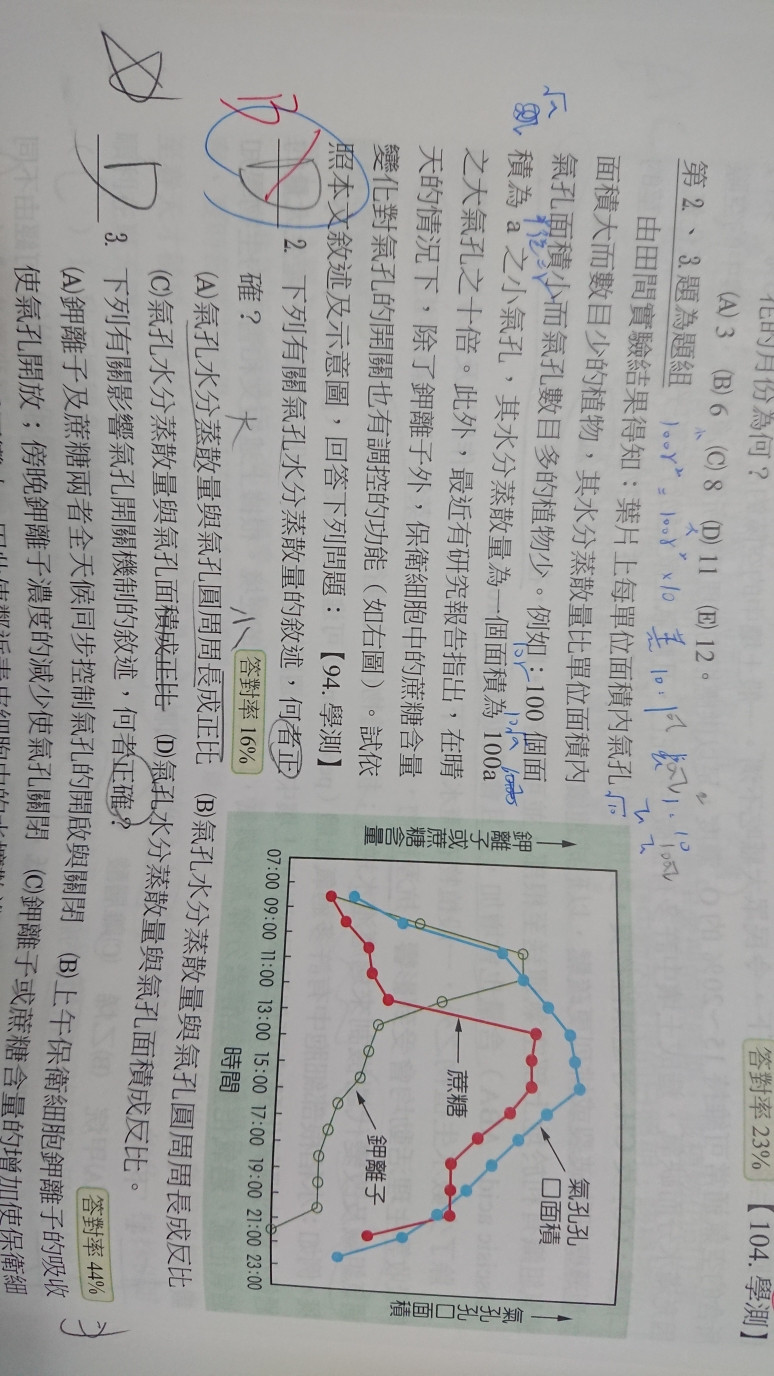 花的月份為何?
答對率 23% 【104. 學測】
(A) 3 (B) 6 (C) 8 (D) 11 (E) 12。
第 2、3. 題為題組
由田間實驗結果得知:葉片上每單位面積內氣孔
面積大而數目少的植物,其水分蒸散量比單位面積內
氣孔面積小而氣孔數目多的植物少。例如:100 個面
積為 a 之小氣孔,其水分蒸散量為一個面積為 100a
之大氣孔之十倍。此外,最近有研究報告指出,在晴
天的情況下,除了鉀離子外,保衛細胞中的蔗糖含量
變化對氣孔的開關也有調控的功能(如右圖)。試依
照本文敘述及示意圖,回答下列問題:【94. 學測】
鉀離子或蔗糖含量
氣孔孔口面積
蔗糖
鉀離子
氣孔孔口面積
07:00 09:00 11:00 13:00 15:00 17:00 19:00 21:00 23:00
時間
B
D
2. 下列有關氣孔水分蒸散量的敘述,何者正
確?
大
小
答對率 16%
(A)氣孔水分蒸散量與氣孔圓周周長成正比 (B)氣孔水分蒸散量與氣孔圓周周長成反比
(C)氣孔水分蒸散量與氣孔面積成正比 (D)氣孔水分蒸散量與氣孔面積成反比。
D
3. 下列有關影響氣孔開關機制的敘述,何者正確?
答對率 44%
(A)鉀離子及蔗糖兩者全天候同步控制氣孔的開啟與關閉 (B)上午保衛細胞鉀離子的吸收
使氣孔開放;傍晚鉀離子濃度的減少使氣孔關閉 (C)鉀離子或蔗糖含量的增加使保衛細